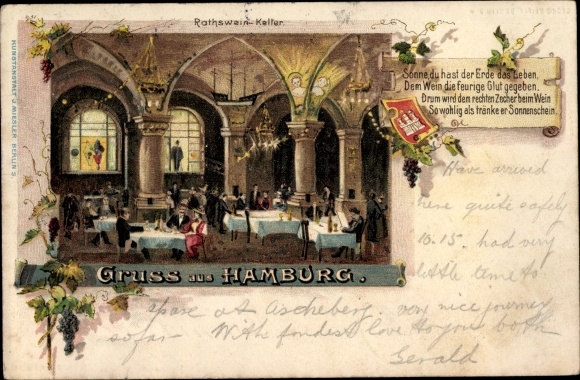 Rathswein-Keller.
Sonne, du hast der Erde das Leben,
Dem Wein die feurige Glut gegeben,
Drum wird dem rechten Zecher beim Wein
So wohlig als tränke er Sonnenschein.
KUNSTANSTALT J. MIESLER, BERLIN S.
Gruss aus HAMBURG.
Have arrived
here quite safely
10.15. had very
little time to
spare at Ascheberg. very nice journey
so far - With fondest love to you both
Gerald